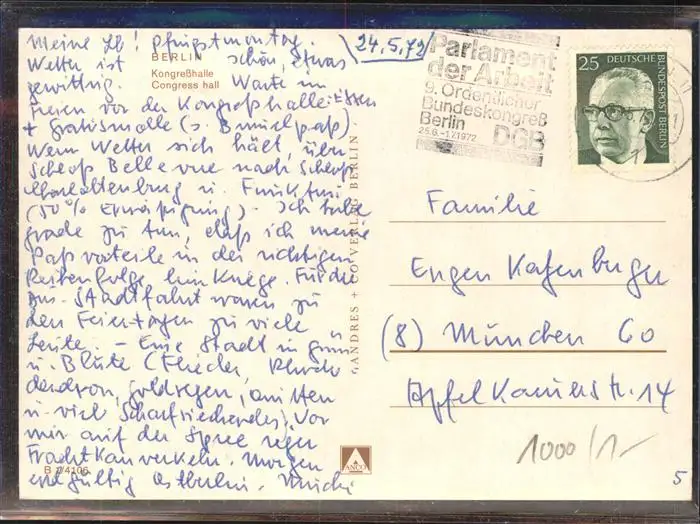 Meine Lb! Pfingstmontag.
Wetter ist schön, etwas
gewittrig. Warte im
Freien vor der Kongreßhalle Essen
+ Gratismolle (s. Bummelpaß).
Wenn Wetter sich hält, über
Schloß Bellevue nach Schloß
Charlottenburg u. Funkturm
(50% Ermäßigung). Ich habe
grade zu tun, daß ich meine
Paßvorteile in der richtigen
Reihenfolge hinkriege. Für die
Stadtfahrt waren zu
den Feiertagen zu viele
Leute. - Eine Stadt in Grün
u. Blüte (Flieder, Rhodo
dendron, Goldregen, Quitten
u. viel Scharfriechendes). Vor
mir auf der Spree reger
Frachtkahnverkehr. Morgen
endgültig Ostberlin.
BERLIN
Kongreßhalle
Congress hall
24.5.72
Parlament
der Arbeit
9. Ordentlicher
Bundeskongreß
Berlin
25.6.-1.7.1972 DGB
25 DEUTSCHE
BUNDESPOST BERLIN
GANDRES + CO VERLAG BERLIN
Familie
Eugen Kafenberger
(8) München 60
Apfelkamerstr. 14
1000/1-
5
B 7/4106
ANCO